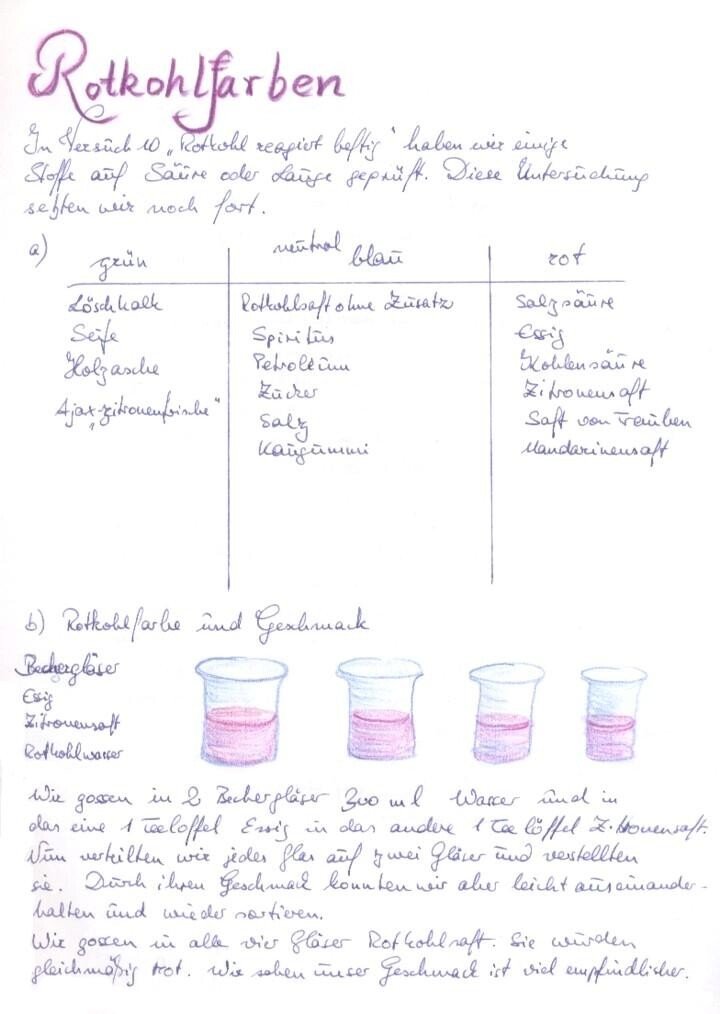 Rotkohlfarben
In Versuch 10 „Rotkohl reagiert heftig" haben wir einige
Stoffe auf Säure oder Lauge geprüft. Diese Untersuchung
setzten wir noch fort.
a) grün neutral blau rot
Löschkalk Rotkohlsaft ohne Zusatz Salzsäure
Seife Spiritus Essig
Holzasche Petroleum Kohlensäure
Ajax „zitronenfrische" Zucker Zitronensaft
Salz Saft von Trauben
Kaugummi Mandarinensaft
b) Rotkohlfarbe und Geschmack
Bechergläser
Essig
Zitronensaft
Rotkohlwasser
Wir gossen in 2 Bechergläser 300 ml Wasser und in
das eine 1 Teelöffel Essig in das andere 1 Tee löffel Zitronensaft.
Nun verteilten wir jedes Glas auf zwei Gläser und verstellten
sie. Durch ihren Geschmack konnten wir aber leicht auseinander-
halten und wieder sortieren.
Wir gossen in alle vier Gläser Rotkohlsaft. Sie wurden
gleichmäßig rot. Wir sehen unser Geschmack ist viel empfindlicher.